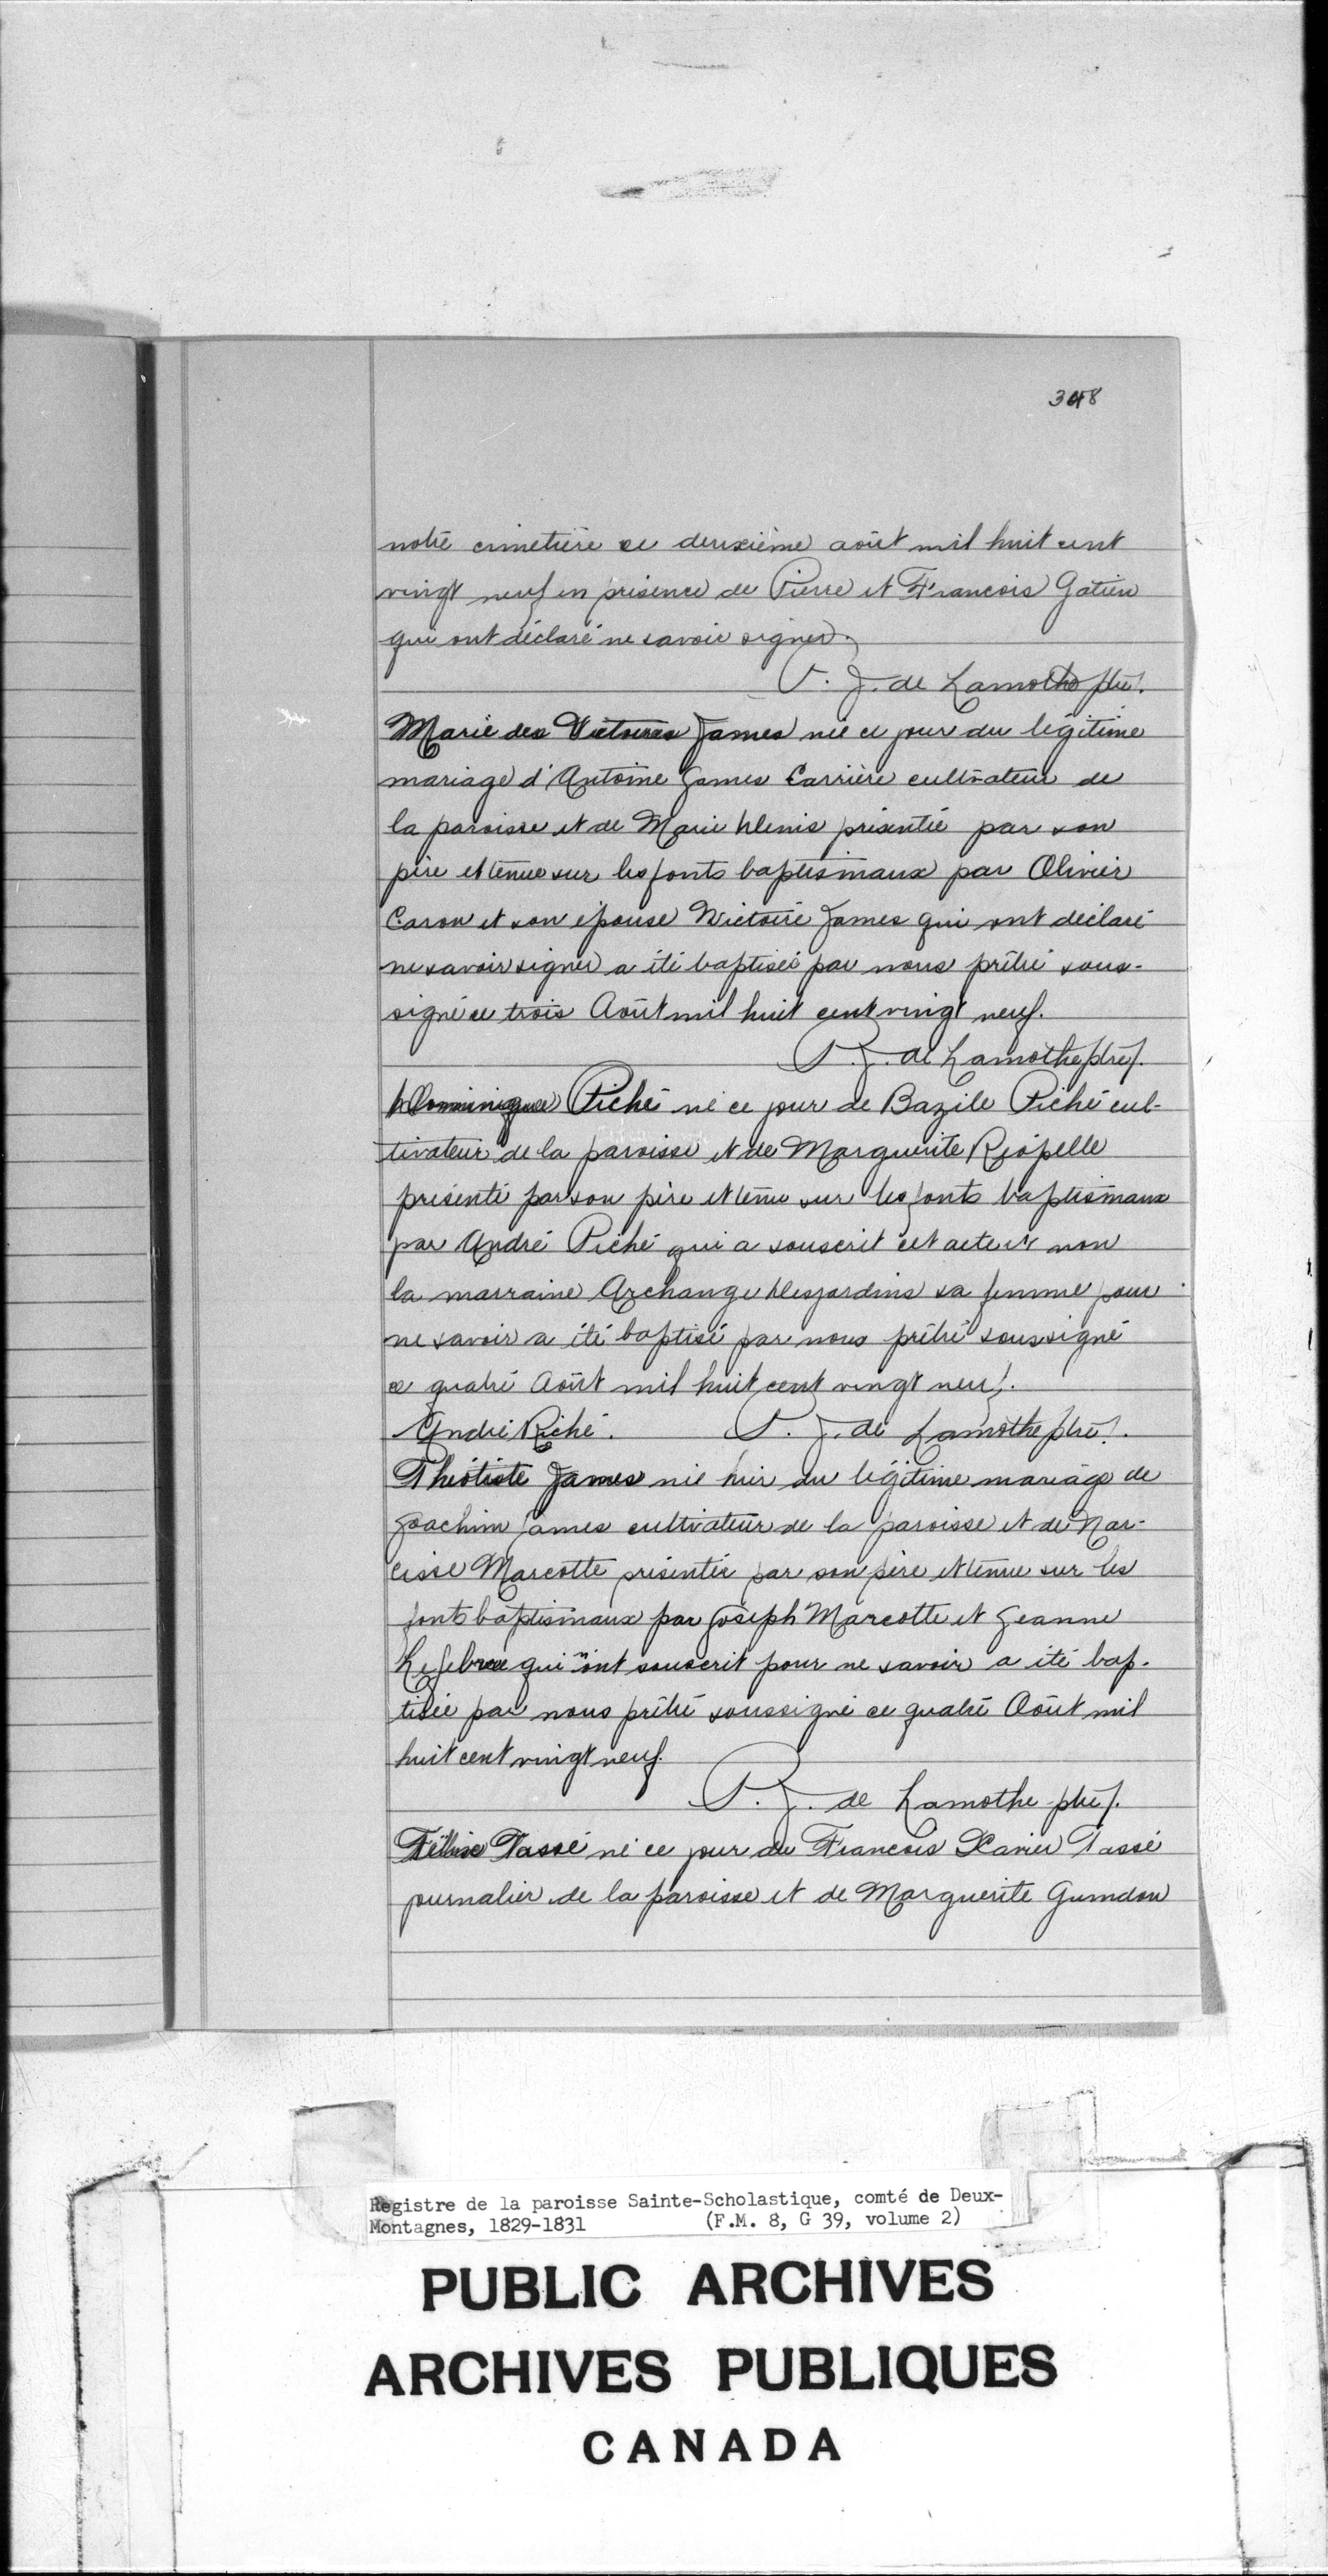 348
notre cimetière ce deuxième août mil huit cent
vingt neuf en présence de Pierre et François Gatien
qui ont déclaré ne savoir signer.
P. J. de Lamothe ptre.
Marie des Victoires James née ce jour du légitime
mariage d'Antoine James Carrière cultivateur de
la paroisse et de Marie Denis présentée par son
père et tenue sur les fonts baptismaux par Olivier
Caron et son épouse Victoire James qui ont déclaré
ne savoir signer a été baptisée par nous prêtre sous-
signé ce trois Août mil huit cent vingt neuf.
P. J. de Lamothe ptre.
Dominique Piché né ce jour de Bazile Piché cul-
tivateur de la paroisse et de Marguerite Riopelle
présenté par son père et tenu sur les fonts baptismaux
par André Piché qui a souscrit cet acte et non
la marraine Archange Desjardins sa femme pour
ne savoir a été baptisé par nous prêtre soussigné
ce quatre Août mil huit cent vingt neuf.
André Piché. P. J. de Lamothe ptre.
Théotiste James née hier du légitime mariage de
Joachim James cultivateur de la paroisse et de Nar-
cisse Marcotte présentée par son père et tenue sur les
fonts baptismaux par Joseph Marcotte et Jeanne
Lefebvre qui n'ont souscrit pour ne savoir a été bap-
tisée par nous prêtre soussigné ce quatre Août mil
huit cent vingt neuf.
P. J. de Lamothe ptre.
Tassé né ce jour de François Xavier Tassé
journalier de la paroisse et de Marguerite Guindon
Registre de la paroisse Sainte-Scholastique, comté de Deux-
Montagnes, 1829-1831 (F.M. 8, G 39, volume 2)
PUBLIC ARCHIVES
ARCHIVES PUBLIQUES
CANADA